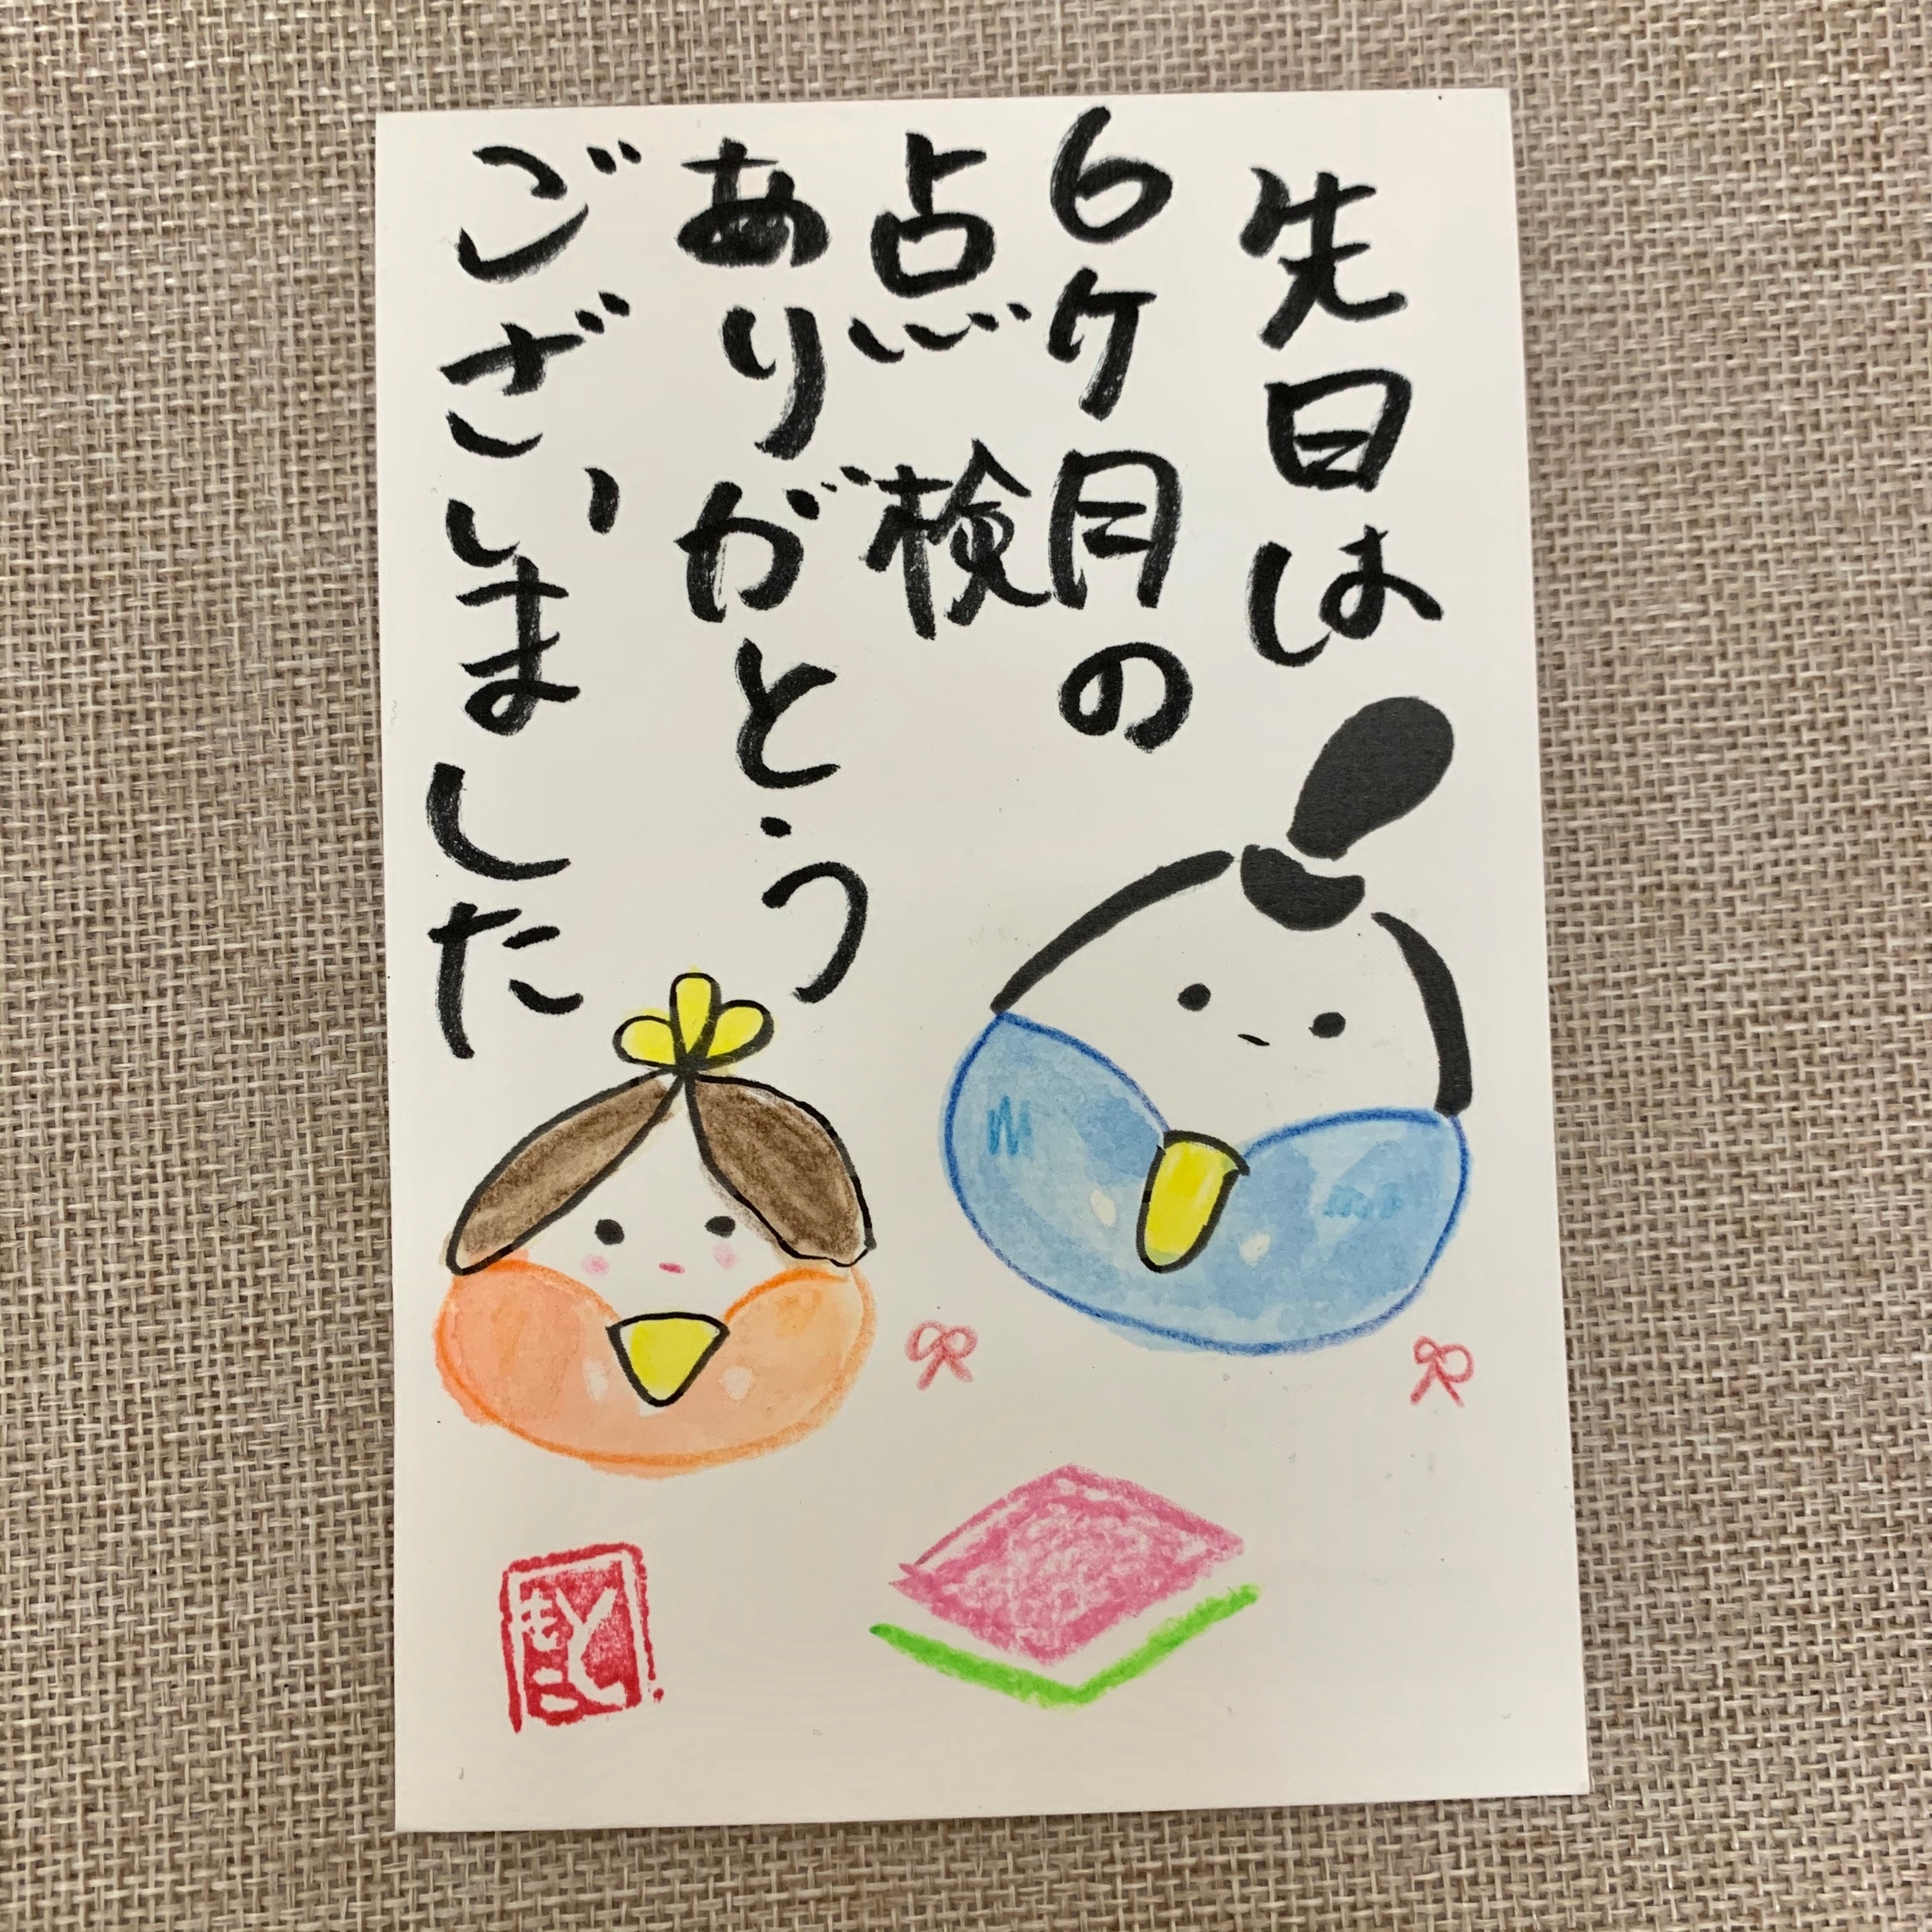 先日は
6ケ月の
点検
ありがとう
ございました
もとこ